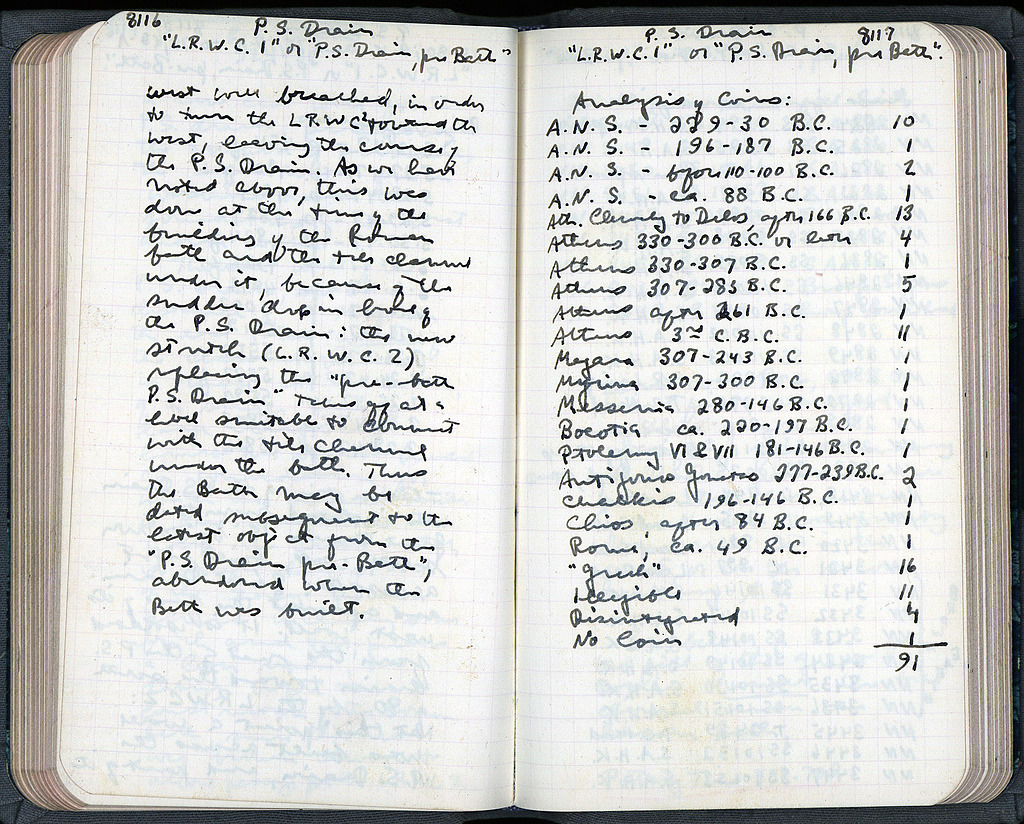 8116
P. S. Drain
"L.R.W.C. 1" or "P.S. Drain, pre Bath"
west wall breached, in order
to turn the L.R.W.C. toward the
west, leaving the course of
the P.S. Drain. As we have
noted above, this was
done at the time of the
building of the Roman
bath and the tile channel
under it, because of the
sudden drop in level of
the P.S. Drain: the new
stretch (L.R.W.C. 2)
replacing the "pre-bath
P.S. Drain" takes off at a
level suitable to connect
with the tile channel
under the bath. Thus
the Bath may be
dated subsequent to the
latest object from the
"P.S. Drain pre-Bath",
abandoned when the
Bath was built.
8117
P. S. Drain
"L.R.W.C. 1" or "P.S. Drain, pre Bath".
Analysis of Coins:
A.N.S. - 229-30 B.C. 10
A.N.S. - 196-187 B.C. 1
A.N.S. - before 110-100 B.C. 2
A.N.S. - ca. 88 B.C. 1
Ath. Cleruchy to Delos, after 166 B.C. 13
Athens 330-300 B.C. or later 4
Athens 330-307 B.C. 1
Athens 307-283 B.C. 5
Athens after 261 B.C. 1
Athens 3rd C. B.C. 11
Megara 307-243 B.C. 1
Myrina 307-300 B.C. 1
Messenia 280-146 B.C. 1
Boeotia ca. 220-197 B.C. 1
Ptolemy VI & VII 181-146 B.C. 1
Antigonos Gonatas 277-239 B.C. 2
Chalkis 196-146 B.C. 1
Chios, after 84 B.C. 1
Rome, ca. 49 B.C. 1
"Greek" 16
Illegible 11
Disintegrated 4
No Coin 1
91